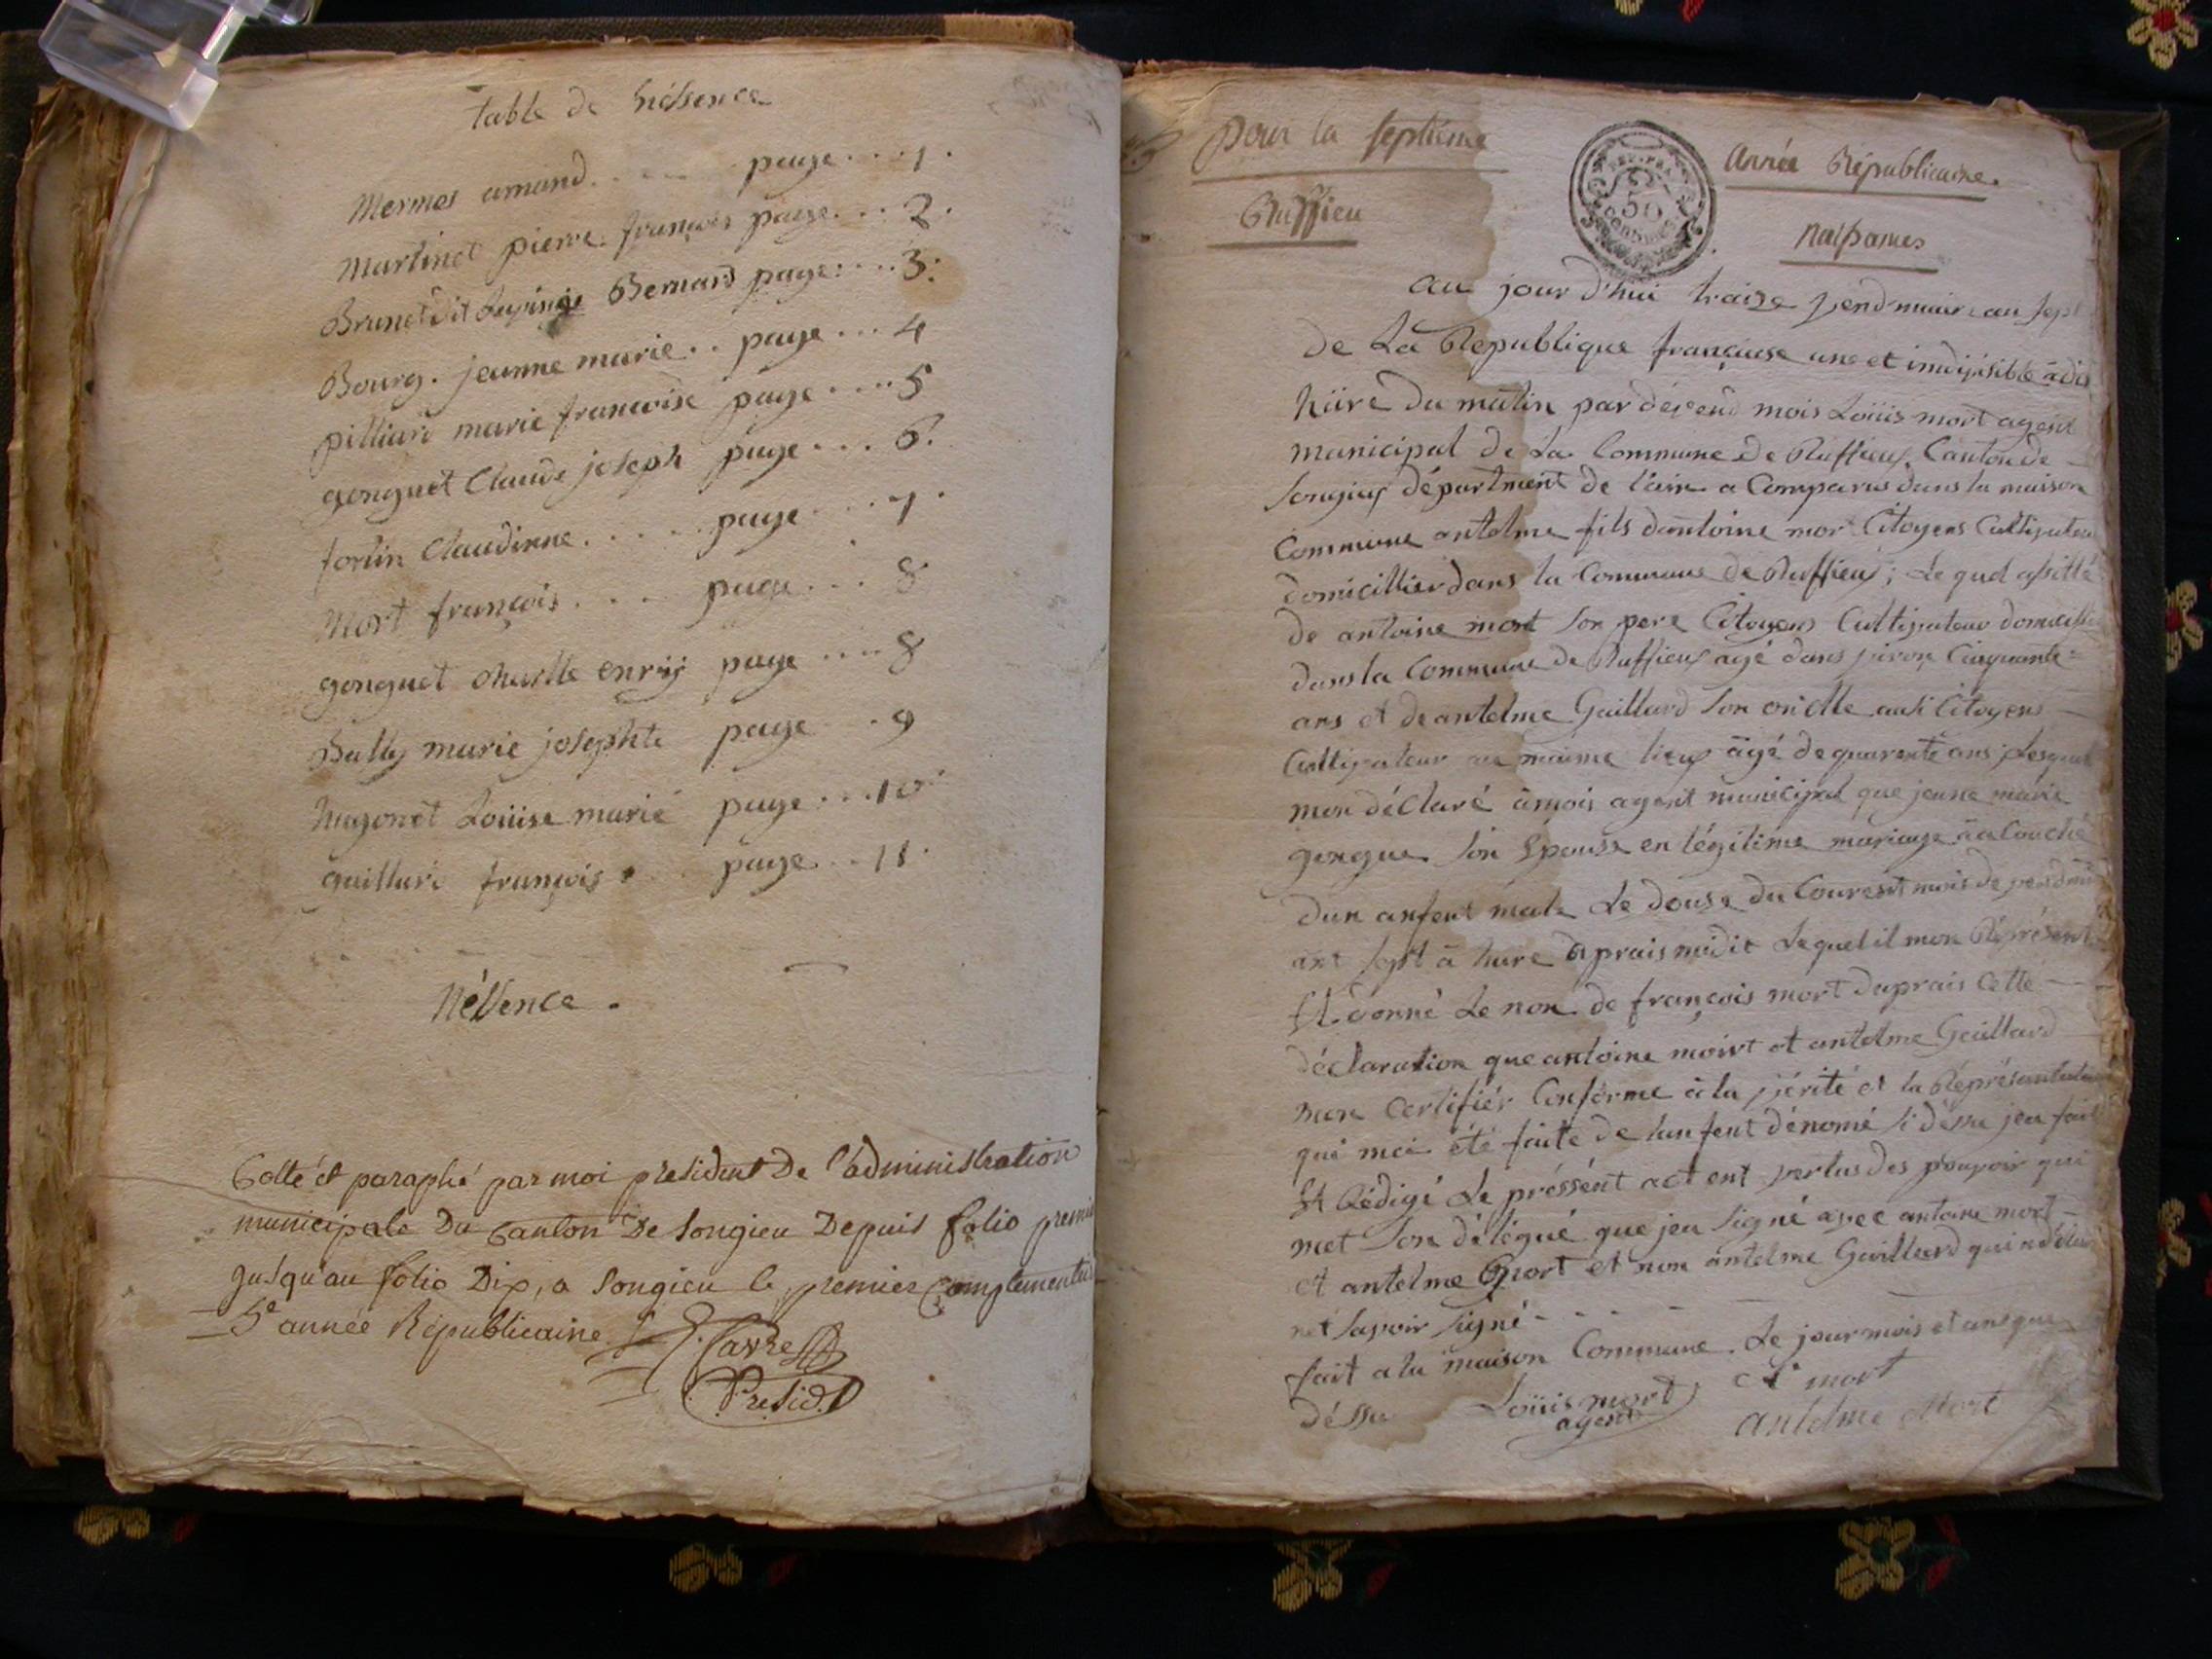 table de
Mermet amand page 1.
Martinet pierre françois page 2.
Brunet dit Bernard page 3.
Bourg. jeanne marie page 4
pilliard marie francoise page 5
gonguet Claude joseph page 6.
fortin Claudinne page 7.
Mort françois page 8
gonguet charlle enrij page 8
Bally marie josephte page 9
hugonet Louise marie page 10.
gaillard françois page 11.
Cotté et paraphé par moi président De l'administration
municipale Du Canton De Songieu Depuis folio premie
jusqu'au folio Dix, a Songieu le premier Complementai
5e année Républicaine
Présid.t
pour la septième
Année Républicaine.
50
Ruffieu
au jour d'hui traize vendmiaire an sept
de La République françiase une et indivisible a dix
hüre du matin par devend mois Loüis mort agent
municipal de La Commune de Ruffieux Canton de
Songieux départment de l'ain a Comparus dans la maison
Commune antelme fils dantoine mor Citoyens Cultivateur
domicillier dans la Commune de Ruffieux; Le quel assitté
de antoine mort son pere Citoyens Cultivateur domicilli
dans la Commune de Ruffieux agé dans viron Cinquante
ans et de antelme Gaillard son onclle ausi Citoyens
Cultivateur au maime lieux agé de quarente ans Lesquel
mon déClaré a mois agent municipal que jeane marie
gongue son Epouse en légitime mariage a aCouché
dun anfent male Le douse du Courent mois de vendmi
ant sept a hure aprais midit Lequel il mon Représent
Et donné Le non de françois mort daprais Cette
déClaration que antoine moirt et antelme Gaillard
mon Certifiér Conforme à la vérité et la Représantation
qui mai été faite de lanfent dénomé si désu jeu fait
Et Rédigé Le préssent act ent vertus des pouvoir qui
met son délégué que jeu signé avec antoine mort
et antelme mort et non antelme Gaillard qui
net savoir signé
fait a la maison Commune Le jour mois et an que
déssu Loüis mort A mort
agent antelme Mort